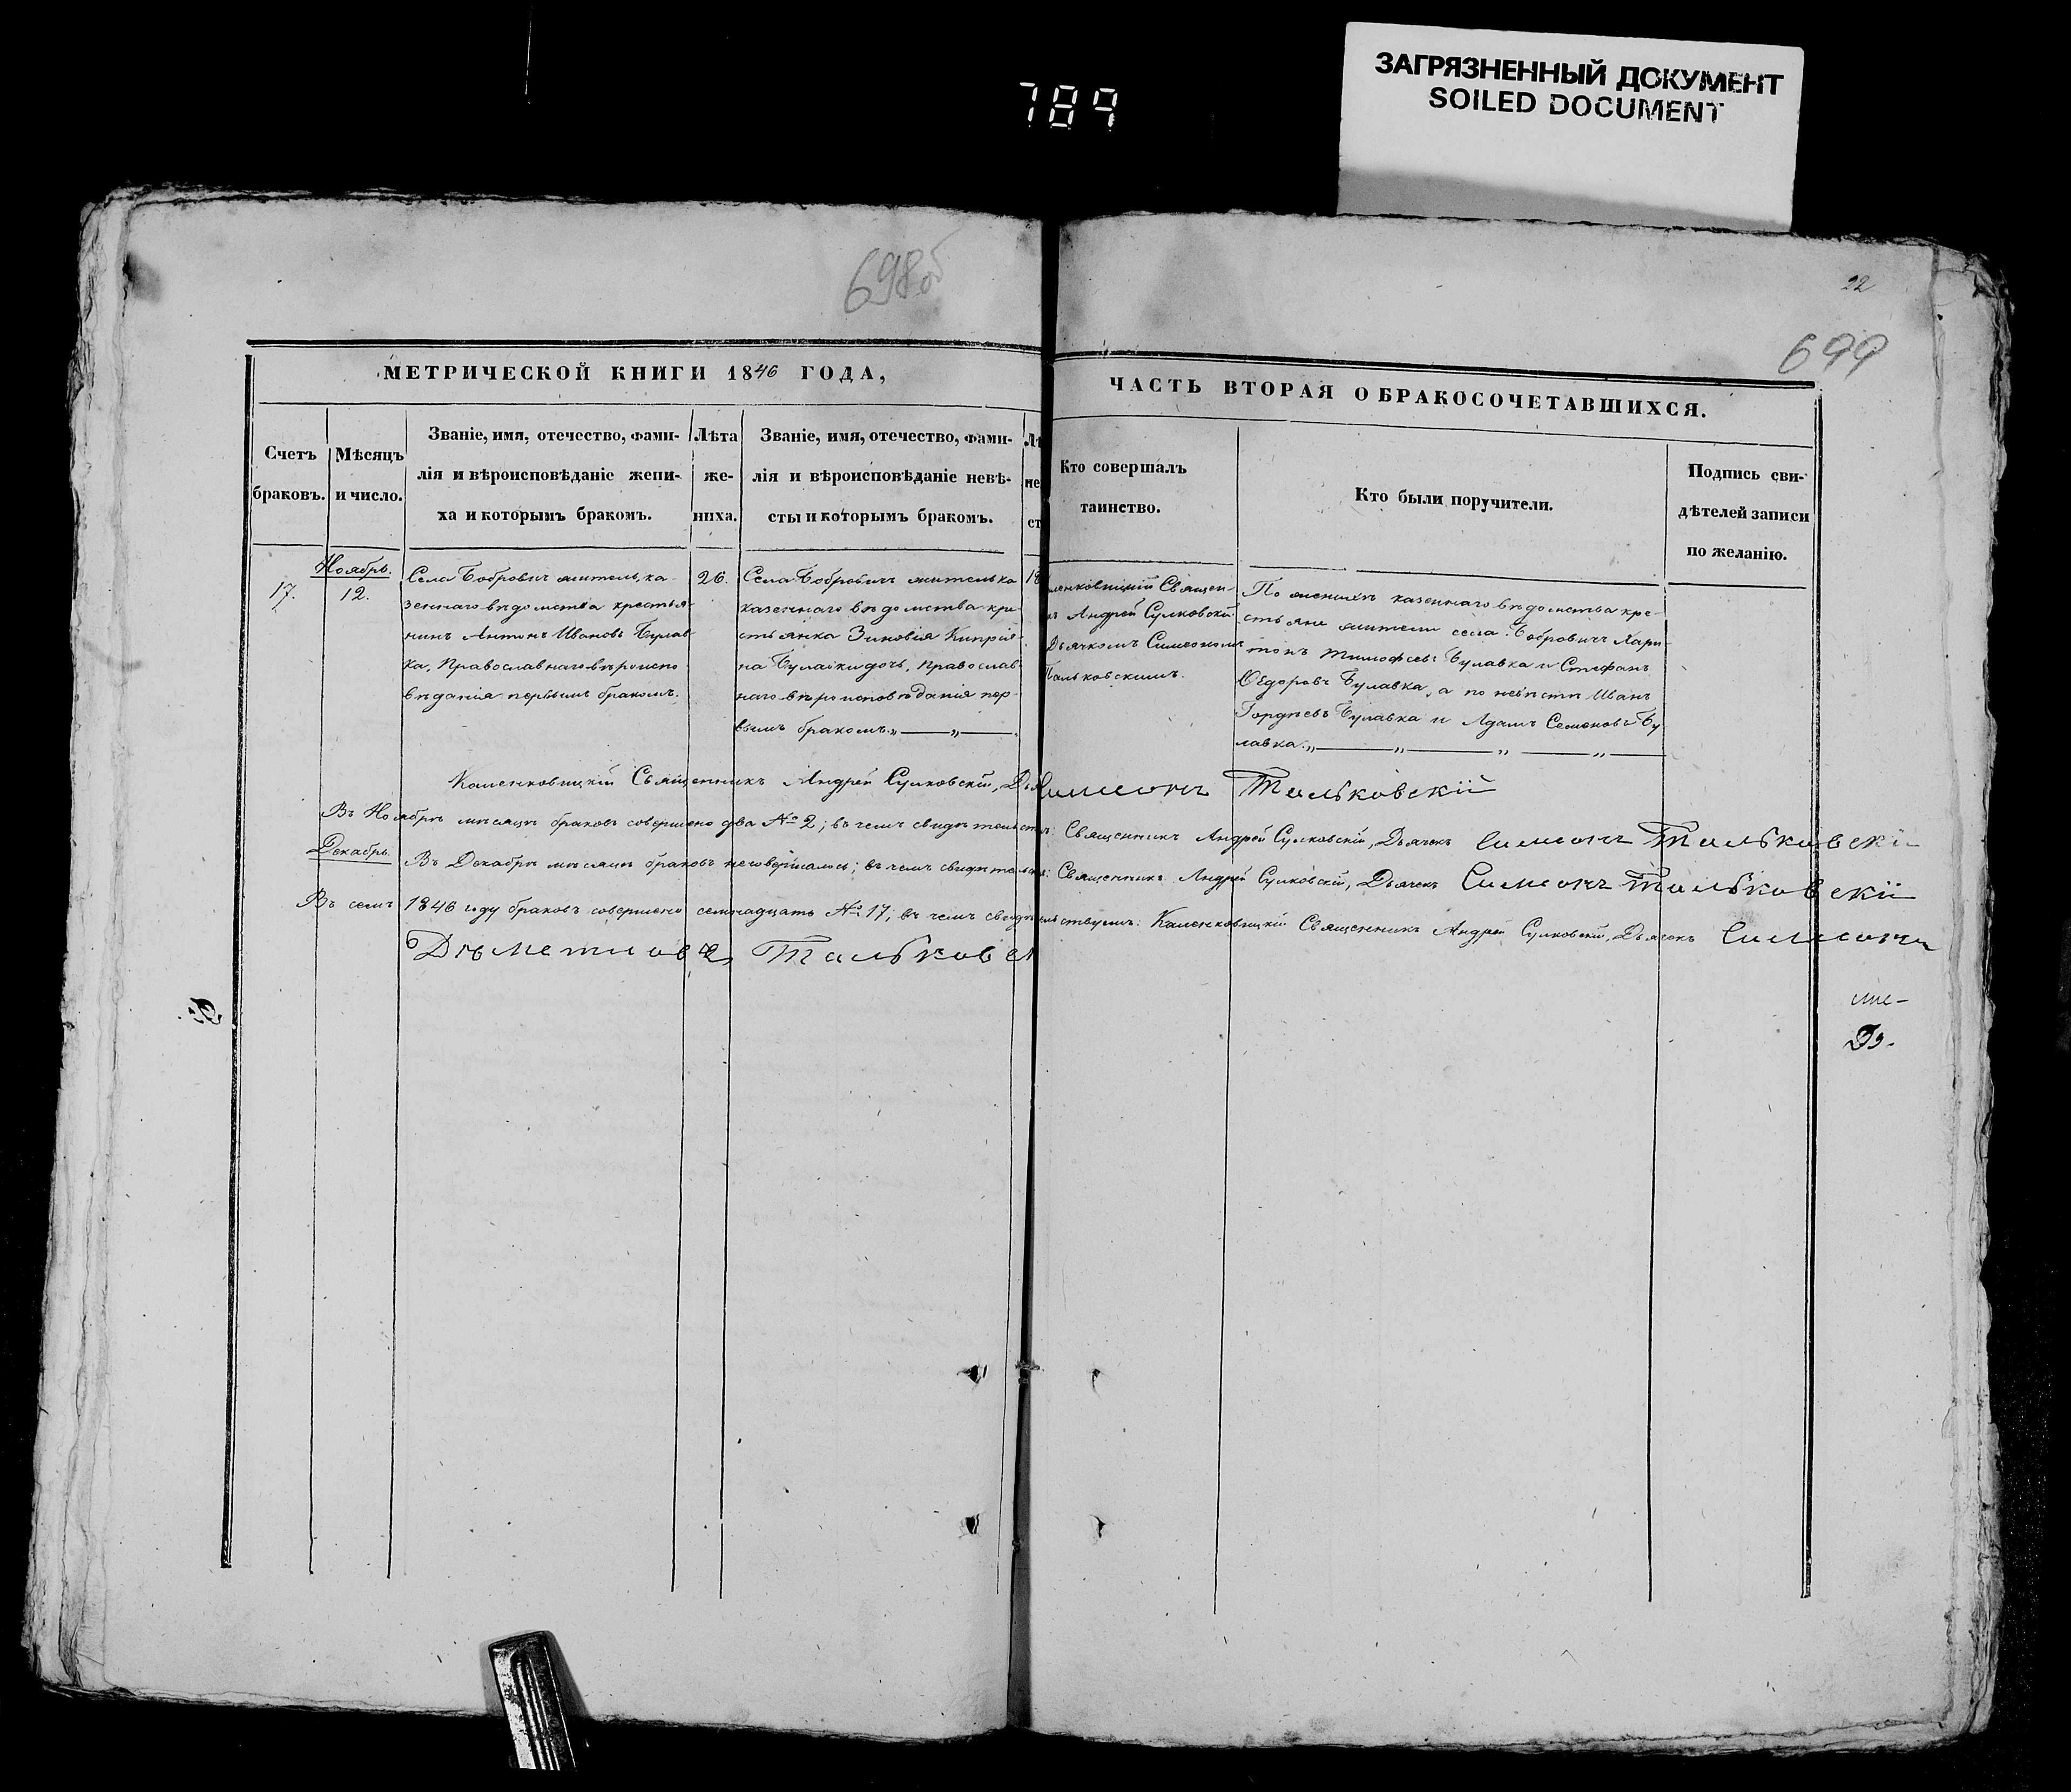 ЗАГРЯЗНЕННЫЙ ДОКУМЕНТ
SOILED DOCUMENT
789
698об
22
699
МЕТРИЧЕСКОЙ КНИГИ 1846 ГОДА,
Счетъ
браковъ.
Мѣсяцъ
и число.
Званіе, имя, отечество, фами-
лія и вѣроисповѣданіе жени-
ха и которымъ бракомъ.
Лѣта
же-
ниха.
Званіе, имя, отечество, фами-
лія и вѣроисповѣданіе невѣ-
сты и которымъ бракомъ.
Лѣ
не
ст
ЧАСТЬ ВТОРАЯ О БРАКОСОЧЕТАВШИХСЯ.
Кто совершалъ
таинство.
Кто были поручители.
Подпись сви-
дѣтелей записи
по желанію.
17.
Ноябрь.
12.
Села Бобровичъ житель, ка-
зеннаго вѣдомства крестья-
нинъ Антонъ Ивановъ Булав
ка, Православнаго вѣроиспо
вѣданія первымъ бракомъ.
26.
Села Бобровичъ жителька
казеннаго вѣдомства кре
стьянка Зиновія Кипрія-
на Булавки дочь, православ
наго вѣроисповѣданія пер-
вымъ бракомъ.„ — „ —
18
менковицкій Священ-
къ Андрей Сулковскій
Дьячкомъ Симеономъ
Тальковскимъ.
По женихѣ казеннаго вѣдомства кре-
стьяне жители села Бобровичъ Хари-
тонъ Тимофеевъ Булавка и Стефанъ
Ѳедоровъ Булавка, а по невѣстѣ Иванъ
Гордѣевъ Булавка и Адамъ Семеновъ Бу
лавка.„ — „ — „ — „ —
Каменковицкій Священникъ Андрей Сулковскій, Дья Симеонъ Тальковскій
Въ Ноябрѣ мѣсяцѣ браковъ совершено два № 2; въ чемъ свидѣтельст: Священникъ Андрей Сулковскій, Дьячекъ Симеонъ Тальковскій
Декабрь.
Въ Декабрѣ мѣсяцѣ браковъ несовершалось; въ чемъ свидѣтельст: Священникъ Андрей Сулковскій, Дьячекъ Симеонъ Тальковскій
Въ семъ 1846 году браковъ совершено семнадцать № 17; въ чемъ свидѣтельствуемъ: Каменковицкій Священникъ Андрей Сулковскій, Дьячекъ Симеонъ
Тальковс